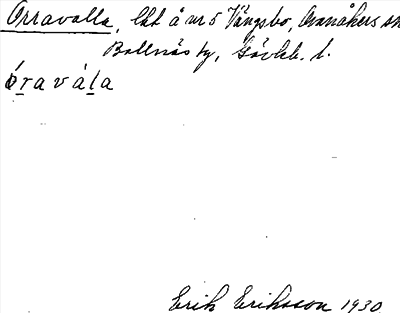 Orravalla, lht å nr 5 Vängsbo, Annåkers sn
Bollnäs ty, Gävleb. l.
óravála
Erik Eriksson 1930